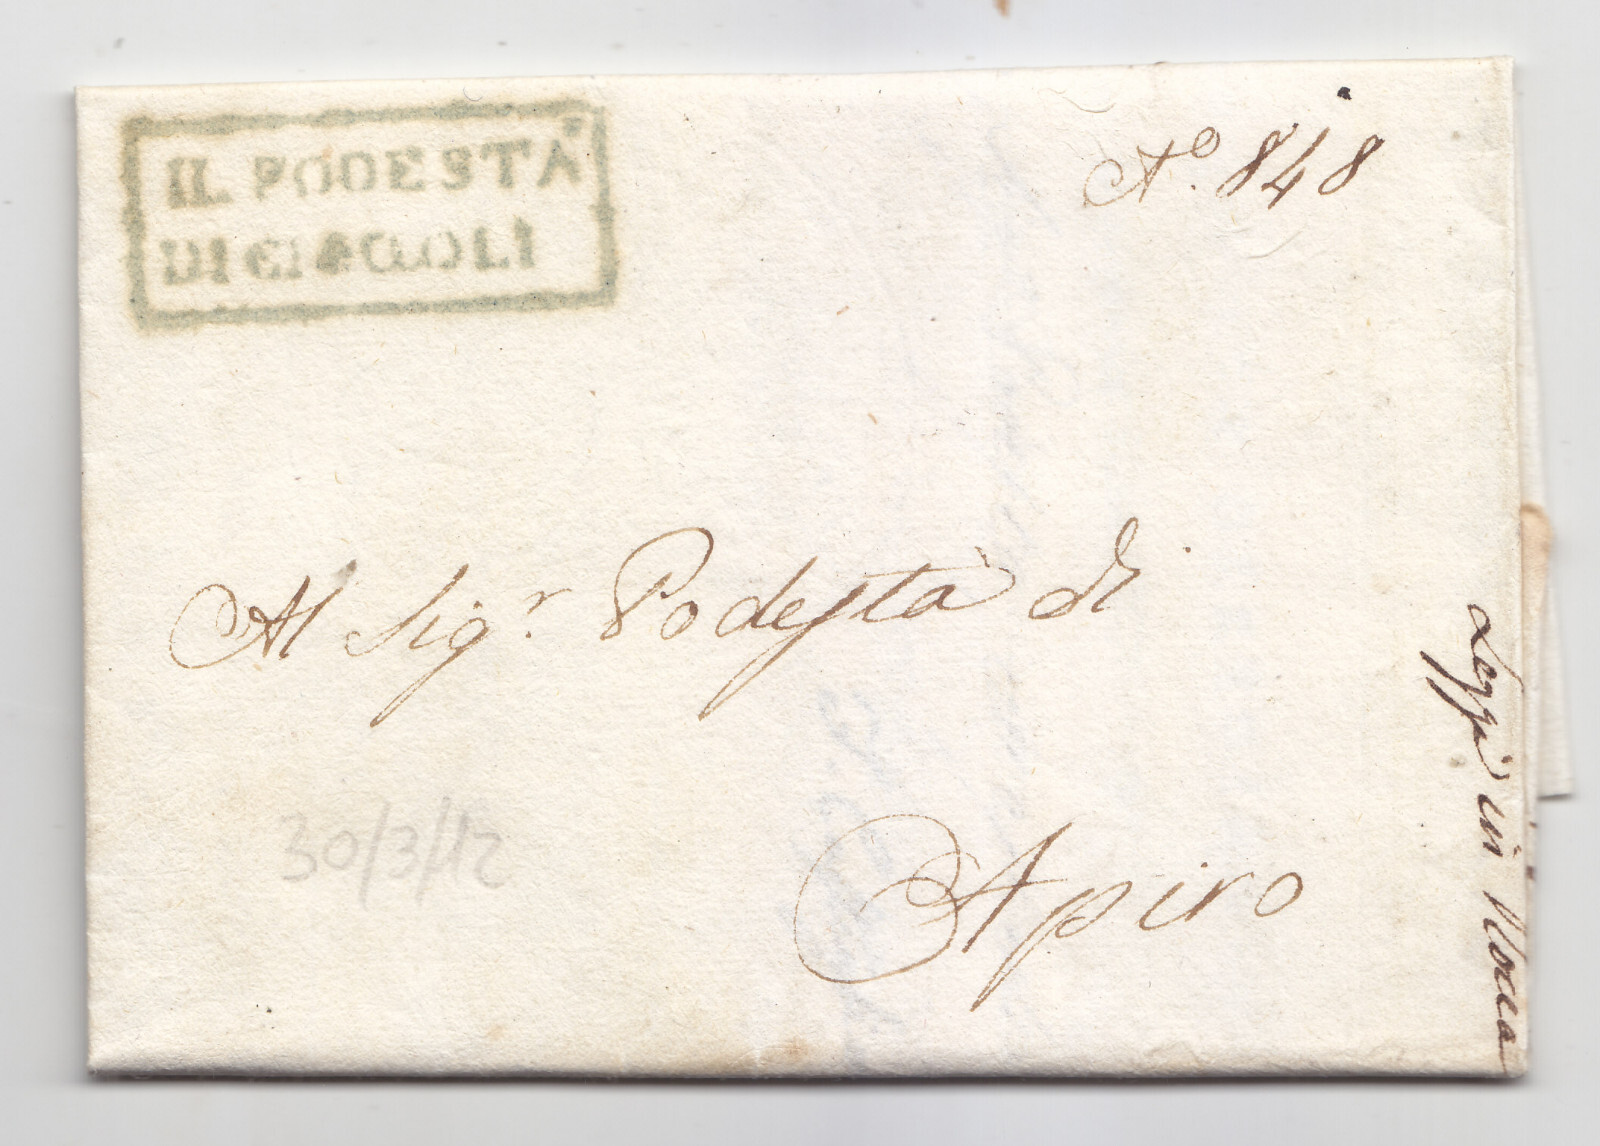 IL PODESTÀ
DI CINGOLI
N.º 848
Al Sig.r Podestà di
Apiro
30/3/12
in